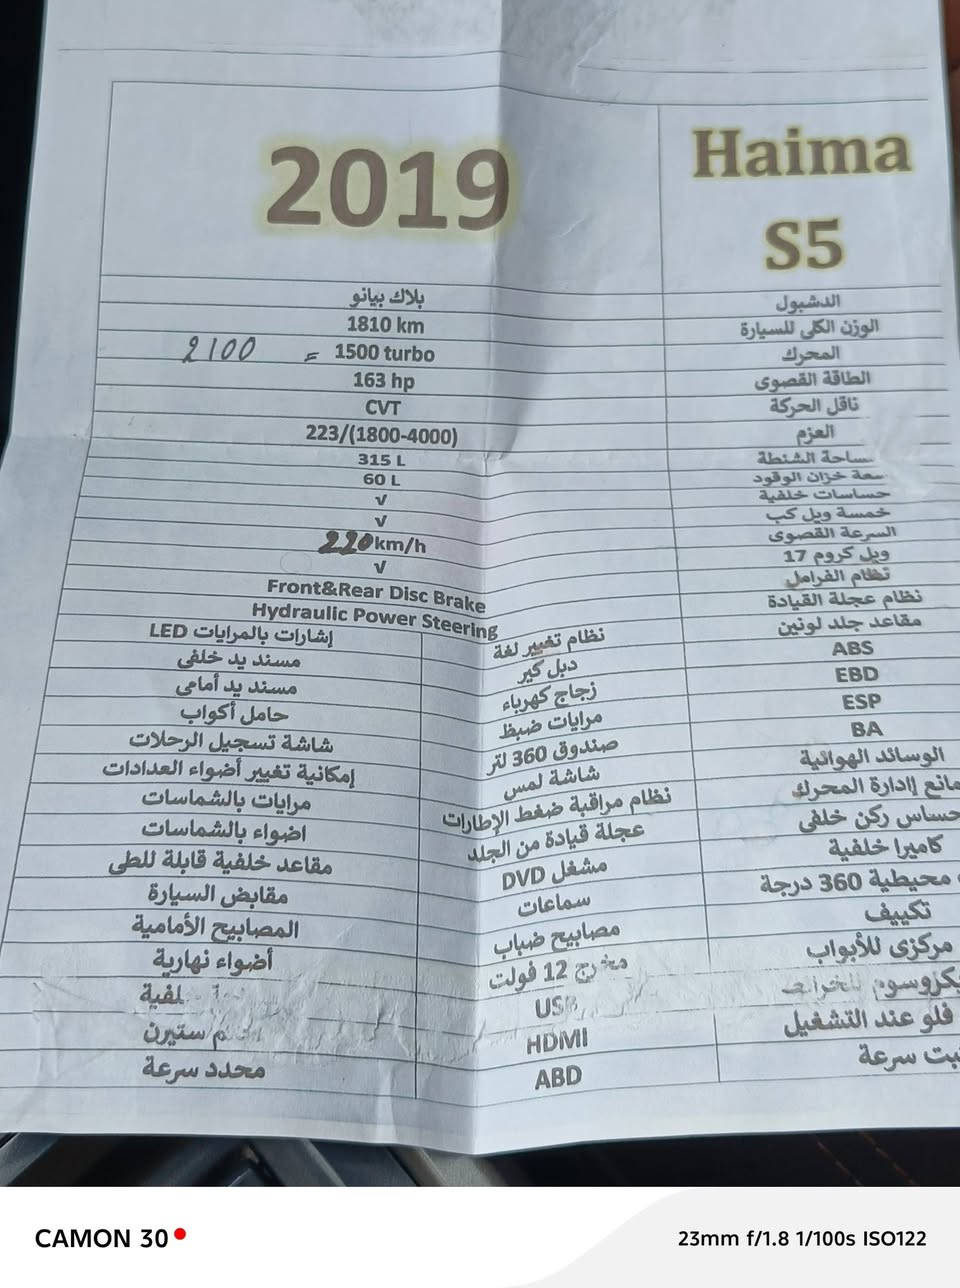 Haima S5 2019
الدشبول بلاك بيانو
الوزن الكلى للسيارة 1810 km
المحرك 1500 turbo = 2100
الطاقة القصوى 163 hp
ناقل الحركة CVT
العزم 223/(1800-4000)
ساحة الشنطة 315 L
سعة خزان الوقود 60 L
حساسات خلفية √
خمسة ويل كب √
السرعة القصوى 220 km/h
ويل كروم 17 √
نظام الفرامل Front&Rear Disc Brake
نظام عجلة القيادة Hydraulic Power Steering
مقاعد جلد لونين نظام تغيير لغة إشارات بالمرايات LED
ABS دبل كير مسند يد خلفى
EBD زجاج كهرباء مسند يد أمامى
ESP مرايات ضبظ حامل أكواب
BA صندوق 360 لتر شاشة تسجيل الرحلات
الوسائد الهوائية شاشة لمس إمكانية تغيير أضواء العدادات
مانع إادارة المحرك نظام مراقبة ضغط الإطارات مرايات بالشماسات
حساس ركن خلفى عجلة قيادة من الجلد اضواء بالشماسات
كاميرا خلفية مشغل DVD مقاعد خلفية قابلة للطى
محيطية 360 درجة سماعات مقابض السيارة
تكييف مصابيح ضباب المصابيح الأمامية
مركزى للأبواب مخرج 12 فولت أضواء نهارية
USB
فلو عند التشغيل HDMI ستيرن
سرعة ABD محدد سرعة
CAMON 30
23mm f/1.8 1/100s ISO122